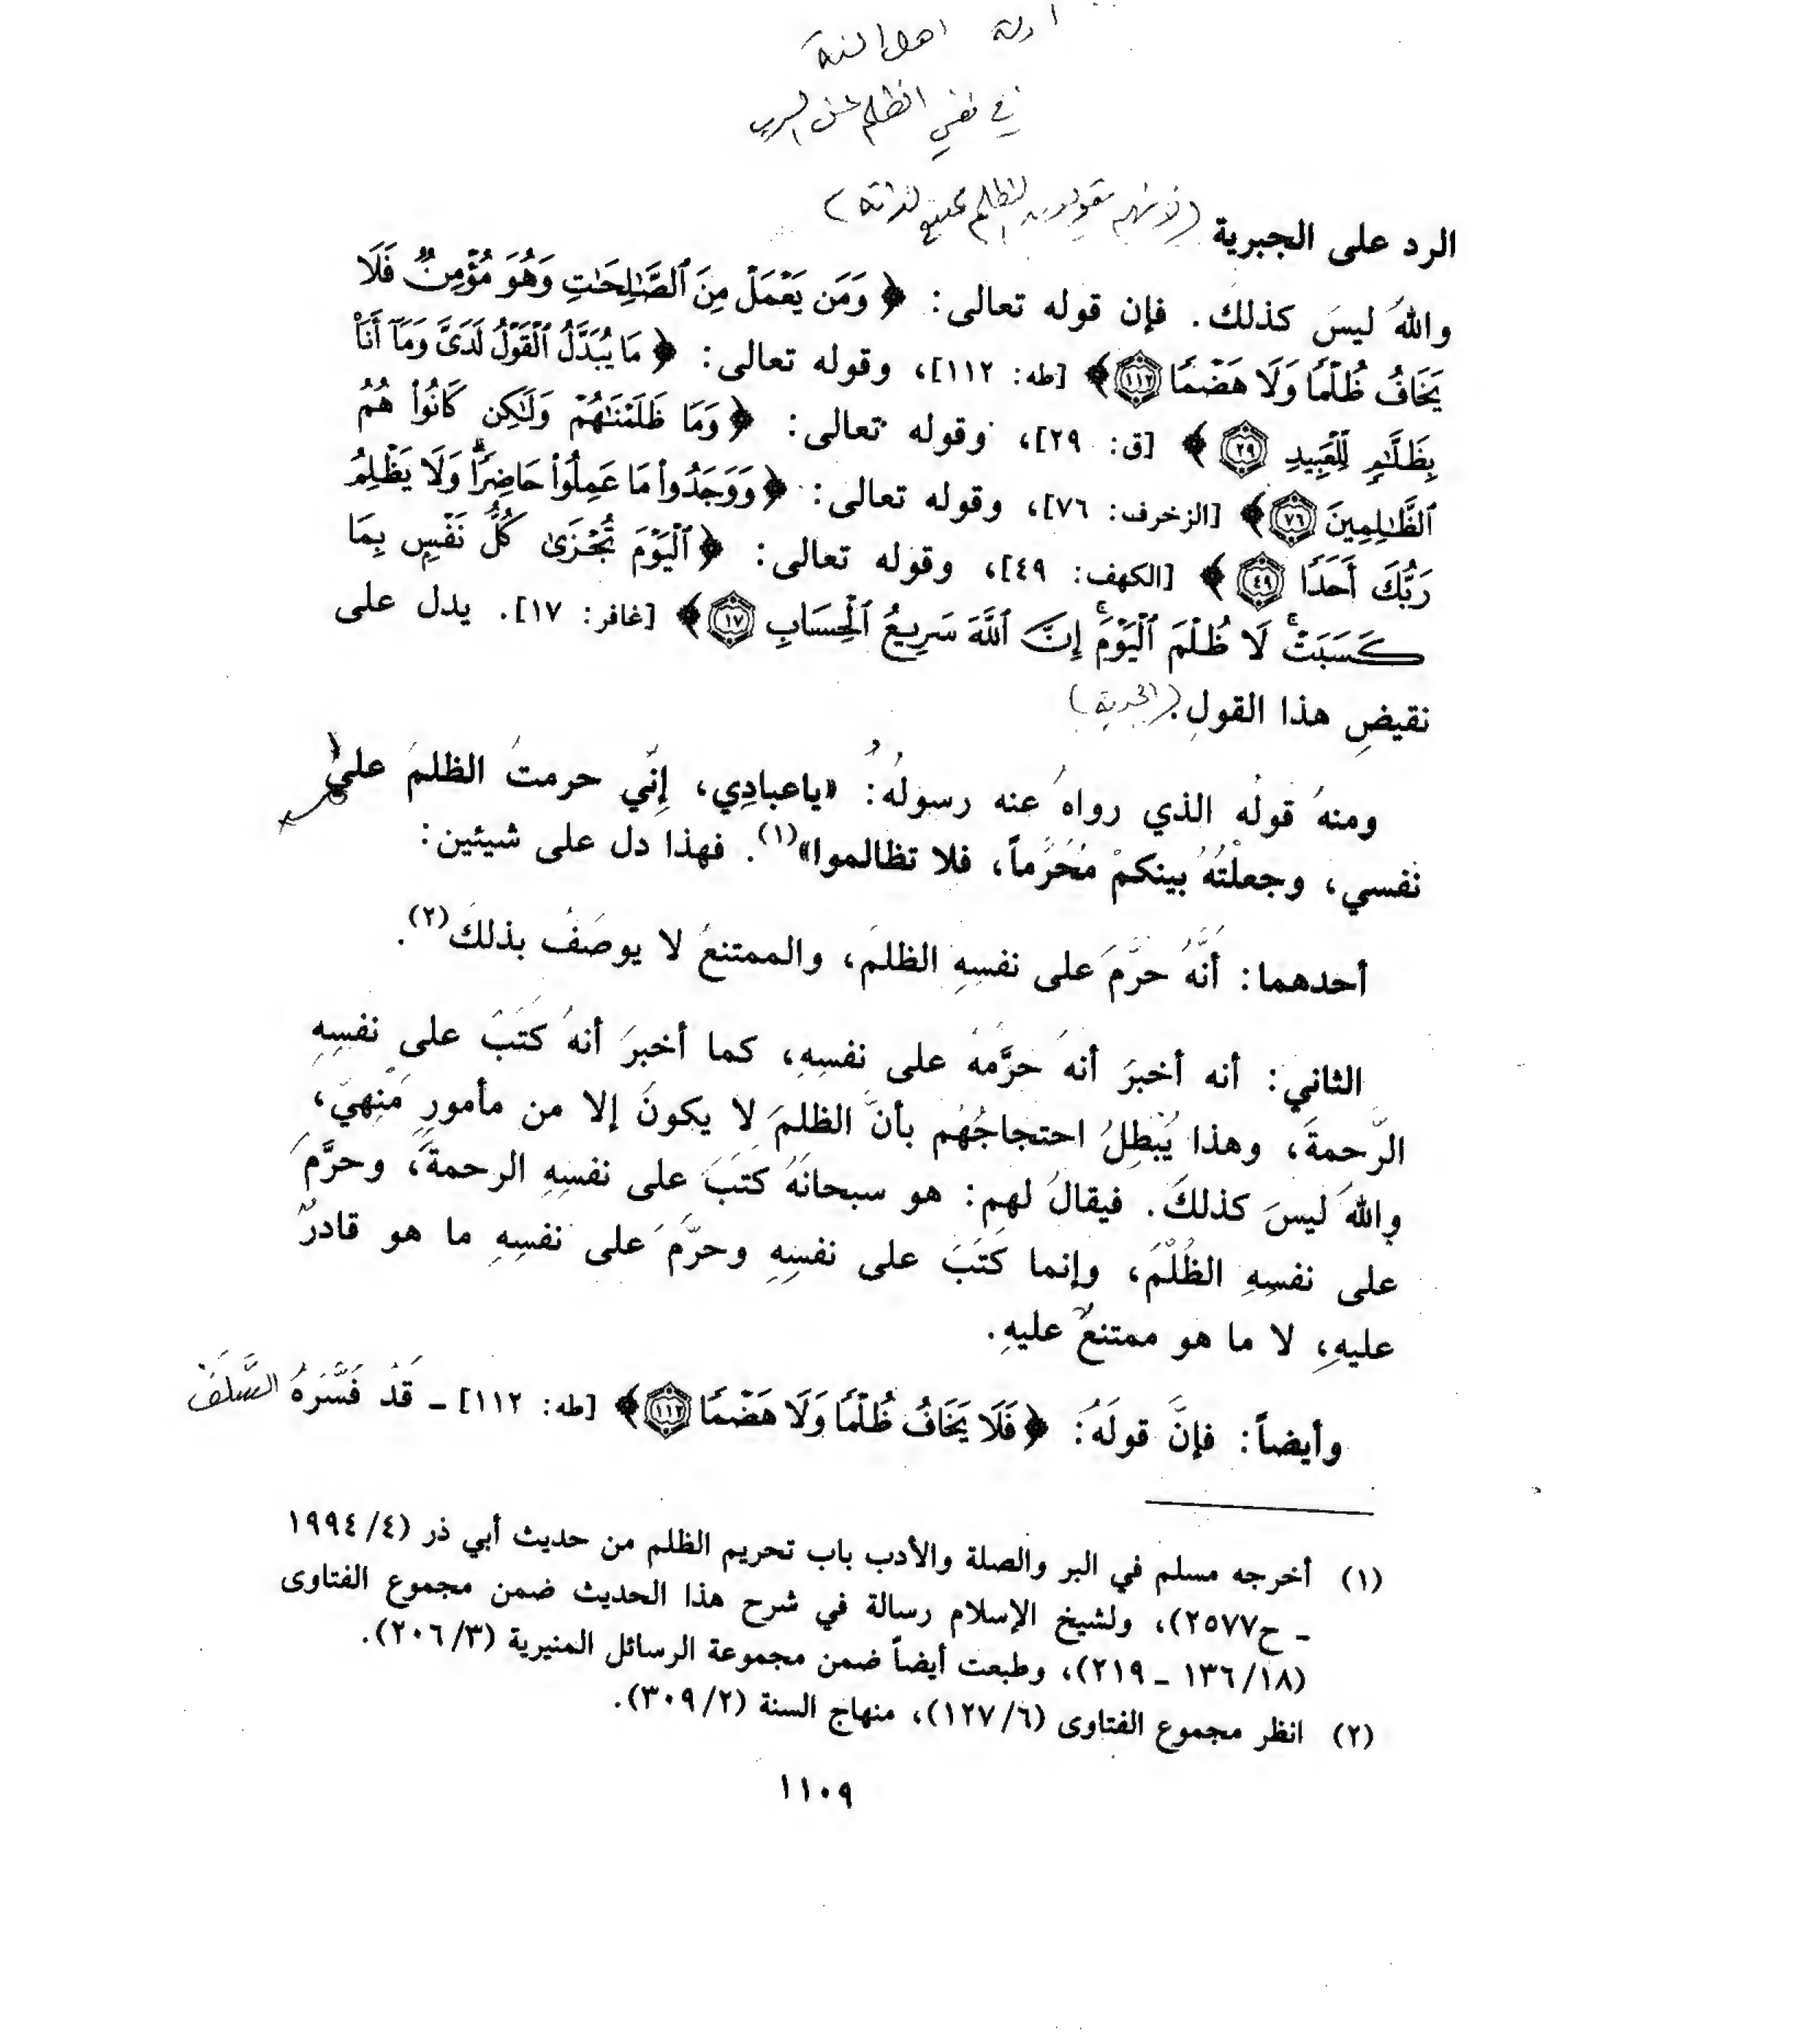 ادلة اهل السنة
في نفي الظلم عن الرب
الرد على الجبرية (لأنهم يقولون الظلم ممتنع لذاته)
واللهُ ليسَ كذلك. فإن قوله تعالى: ﴿ وَمَن يَعْمَلْ مِنَ ٱلصَّـٰلِحَـٰتِ وَهُوَ مُؤْمِنٌ فَلَا
يَخَافُ ظُلْمًا وَلَا هَضْمًا ١١٢﴾ [طه: ١١٢]، وقوله تعالى: ﴿ مَا يُبَدَّلُ ٱلْقَوْلُ لَدَىَّ وَمَآ أَنَا۠
بِظَلَّـٰمٍ لِّلْعَبِيدِ ٢٩ ﴾ [ق: ٢٩]، وقوله تعالى: ﴿ وَمَا ظَلَمْنَـٰهُمْ وَلَـٰكِن كَانُوا۟ هُمُ
ٱلظَّـٰلِمِينَ ٧٦﴾ [الزخرف: ٧٦]، وقوله تعالى: ﴿ وَوَجَدُوا۟ مَا عَمِلُوا۟ حَاضِرًا ۗ وَلَا يَظْلِمُ
رَبُّكَ أَحَدًا ٤٩ ﴾ [الكهف: ٤٩]، وقوله تعالى: ﴿ ٱلْيَوْمَ تُجْزَىٰ كُلُّ نَفْسٍ بِمَا
كَسَبَتْ ۚ لَا ظُلْمَ ٱلْيَوْمَ ۚ إِنَّ ٱللَّهَ سَرِيعُ ٱلْحِسَابِ ١٧﴾ [غافر: ١٧]. يدل على
نقيضِ هذا القولِ. (الجبرية)
ومنهُ قولُه الذي رواهُ عنه رسولُهُ: «ياعبادِي، إِنّي حرمتُ الظلمَ على
نفسي، وجعلْتُهُ بينكمْ مُحَرَّماً، فلا تظالموا»(١). فهذا دل على شيئين:
أحدهما: أنَّهُ حرَّمَ على نفسِهِ الظلمَ، والممتنعُ لا يوصَفُ بذلكَ(٢).
الثاني: أنه أخبرَ أنهُ حرَّمهُ على نفسِهِ، كما أخبرَ أنهُ كتَبَ على نفسِهِ
الرَّحمةَ، وهذا يُبْطِلُ احتجاجُهُم بأنَّ الظلمَ لا يكونَ إلا من مأمورٍ مَنِهيّ،
واللهَ ليسَ كذلكَ. فيقالُ لهم: هو سبحانَهُ كتَبَ على نفسِهِ الرحمةَ، وحرَّمَ
على نفسِهِ الظُلْمَ، وإنما كَتَبَ على نفسِهِ وحرَّمَ على نفسِهِ ما هو قادرٌ
عليهِ، لا ما هو ممتنعٌ عليهِ.
وأيضاً: فإنَّ قولَهُ: ﴿ فَلَا يَخَافُ ظُلْمًا وَلَا هَضْمًا ١١٢﴾ [طه: ١١٢] ـ قَدْ فَسَّرَهُ السَّلَفُ
(١) أخرجه مسلم في البر والصلة والأدب باب تحريم الظلم من حديث أبي ذر (٤/ ١٩٩٤
ـ ح٢٥٧٧)، ولشيخ الإسلام رسالة في شرح هذا الحديث ضمن مجموع الفتاوى
(١٨/ ١٣٦ ـ ٢١٩)، وطبعت أيضاً ضمن مجموعة الرسائل المنيرية (٣/ ٢٠٦).
(٢) انظر مجموع الفتاوى (٦/ ١٢٧)، منهاج السنة (٢/ ٣٠٩).
١١٠٩